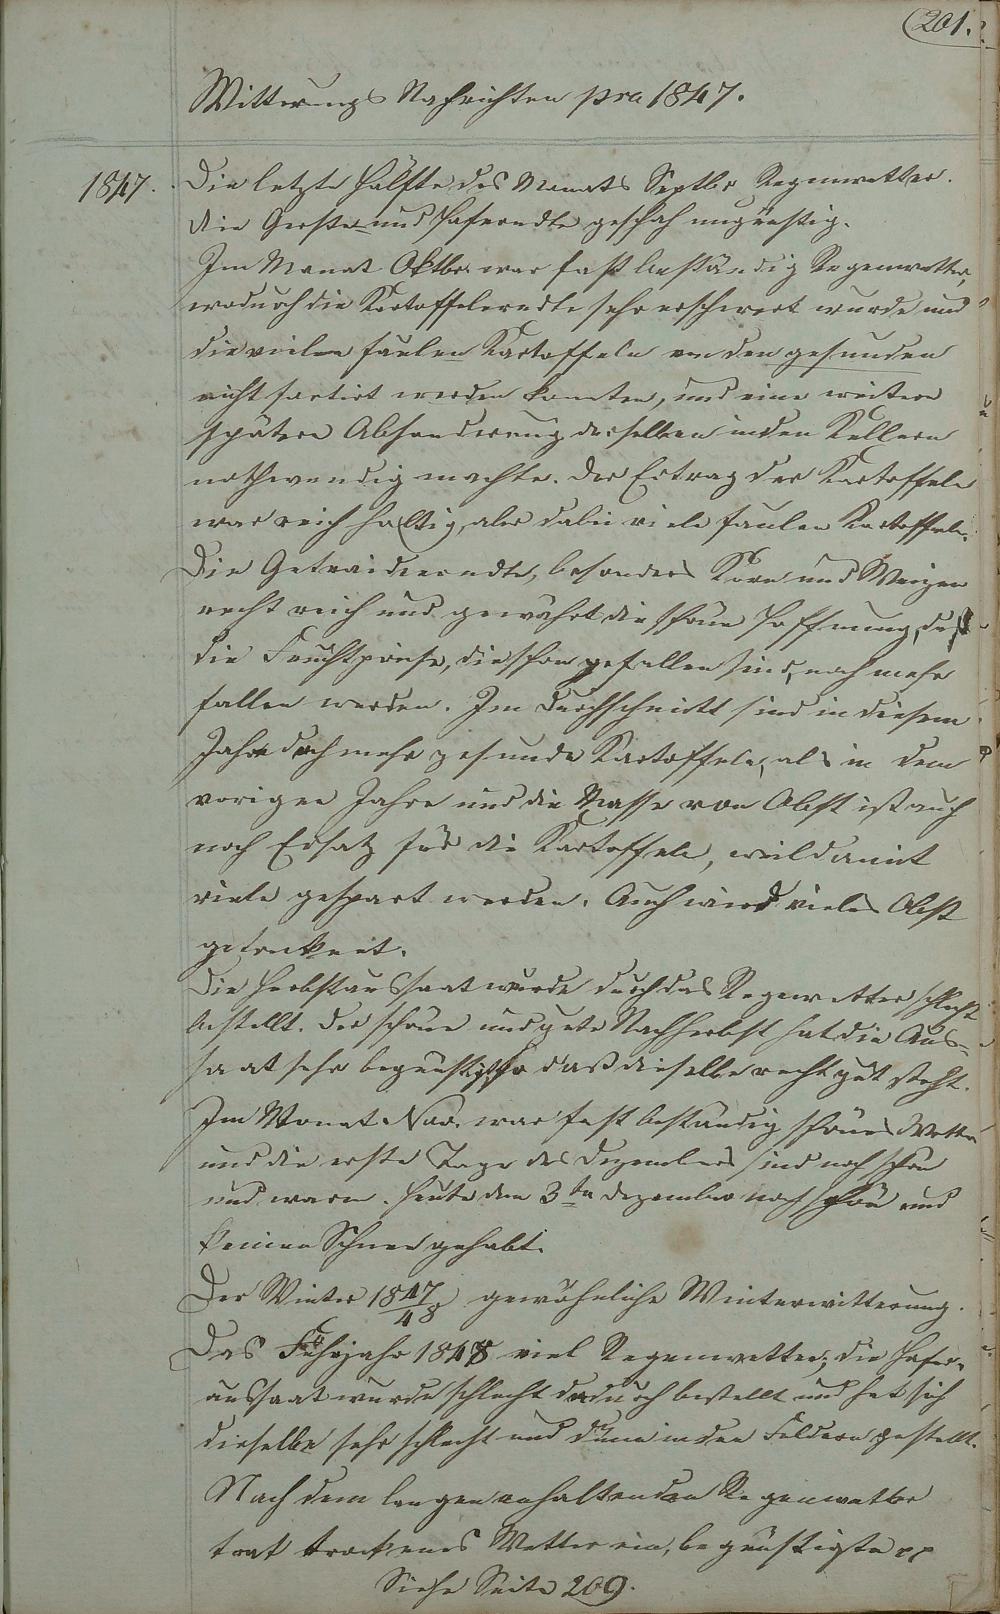 (201.)
Witterungs Nachrichten pra 1847.
1847. Die letzte Hälfte des Monats Septbr Regenwetter.
die Gerste- und Hafererndte geschah ungünstig.
Im Monat Oktbr. war fast beständig Regenwetter,
wodurch die Kartoffelerndte sehr erschwert wurde und
die vielen faulen Kartoffeln von den gesunden
nicht sortirt werden konnten, und eine weitere
spätere Absonderung derselben in den Kellern
nothwendig machte. Der Ertrag der Kartoffeln
war reichhaltig, aber dabei viele faulen Kartoffeln.
Die Getraideerndte, besonders Korn und Weizen
recht reich und gewährt die schöne Hoffnung, daß
die Fruchtpreise, die schon gefallen sind, noch mehr
fallen werden. Im Durchschnitt sind in diesem
Jahre doch mehr gesunde Kartoffeln, als in dem
vorigen Jahre und die Masse von Obst ist auch
noch Ersatz für die Kartoffeln, weil damit
viele gespart werden. Auch wird vieles Obst
getrocknet.
Die Herbstaussaat wurde durch das Regenwetter schlecht
bestellt. Der schöne und gute Nachherbst hat die Aus-
saat sehr begünstigt, so daß dieselbe recht gut steht.
Im Monat Nov. war fast beständig schönes Wetter
und die erste Tage des Dezembers sind noch schön
und warm. Heute den 3ten Dezember noch schön und
keinen Schnee gehabt.
Der Winter 1847/48 gewöhnliche Winterwitterung.
Das Frühjahr 1848 viel Regenwetter; die Hafer-
aussaat wurde schlecht dadurch bestellt und hat sich
dieselbe sehr schlecht und dünn in den Feldern gestellt.
Nach dem langen anhaltenden Regenwetter
trat trockenes Wetter ein, begünstigte pp
Siehe Seite 209.